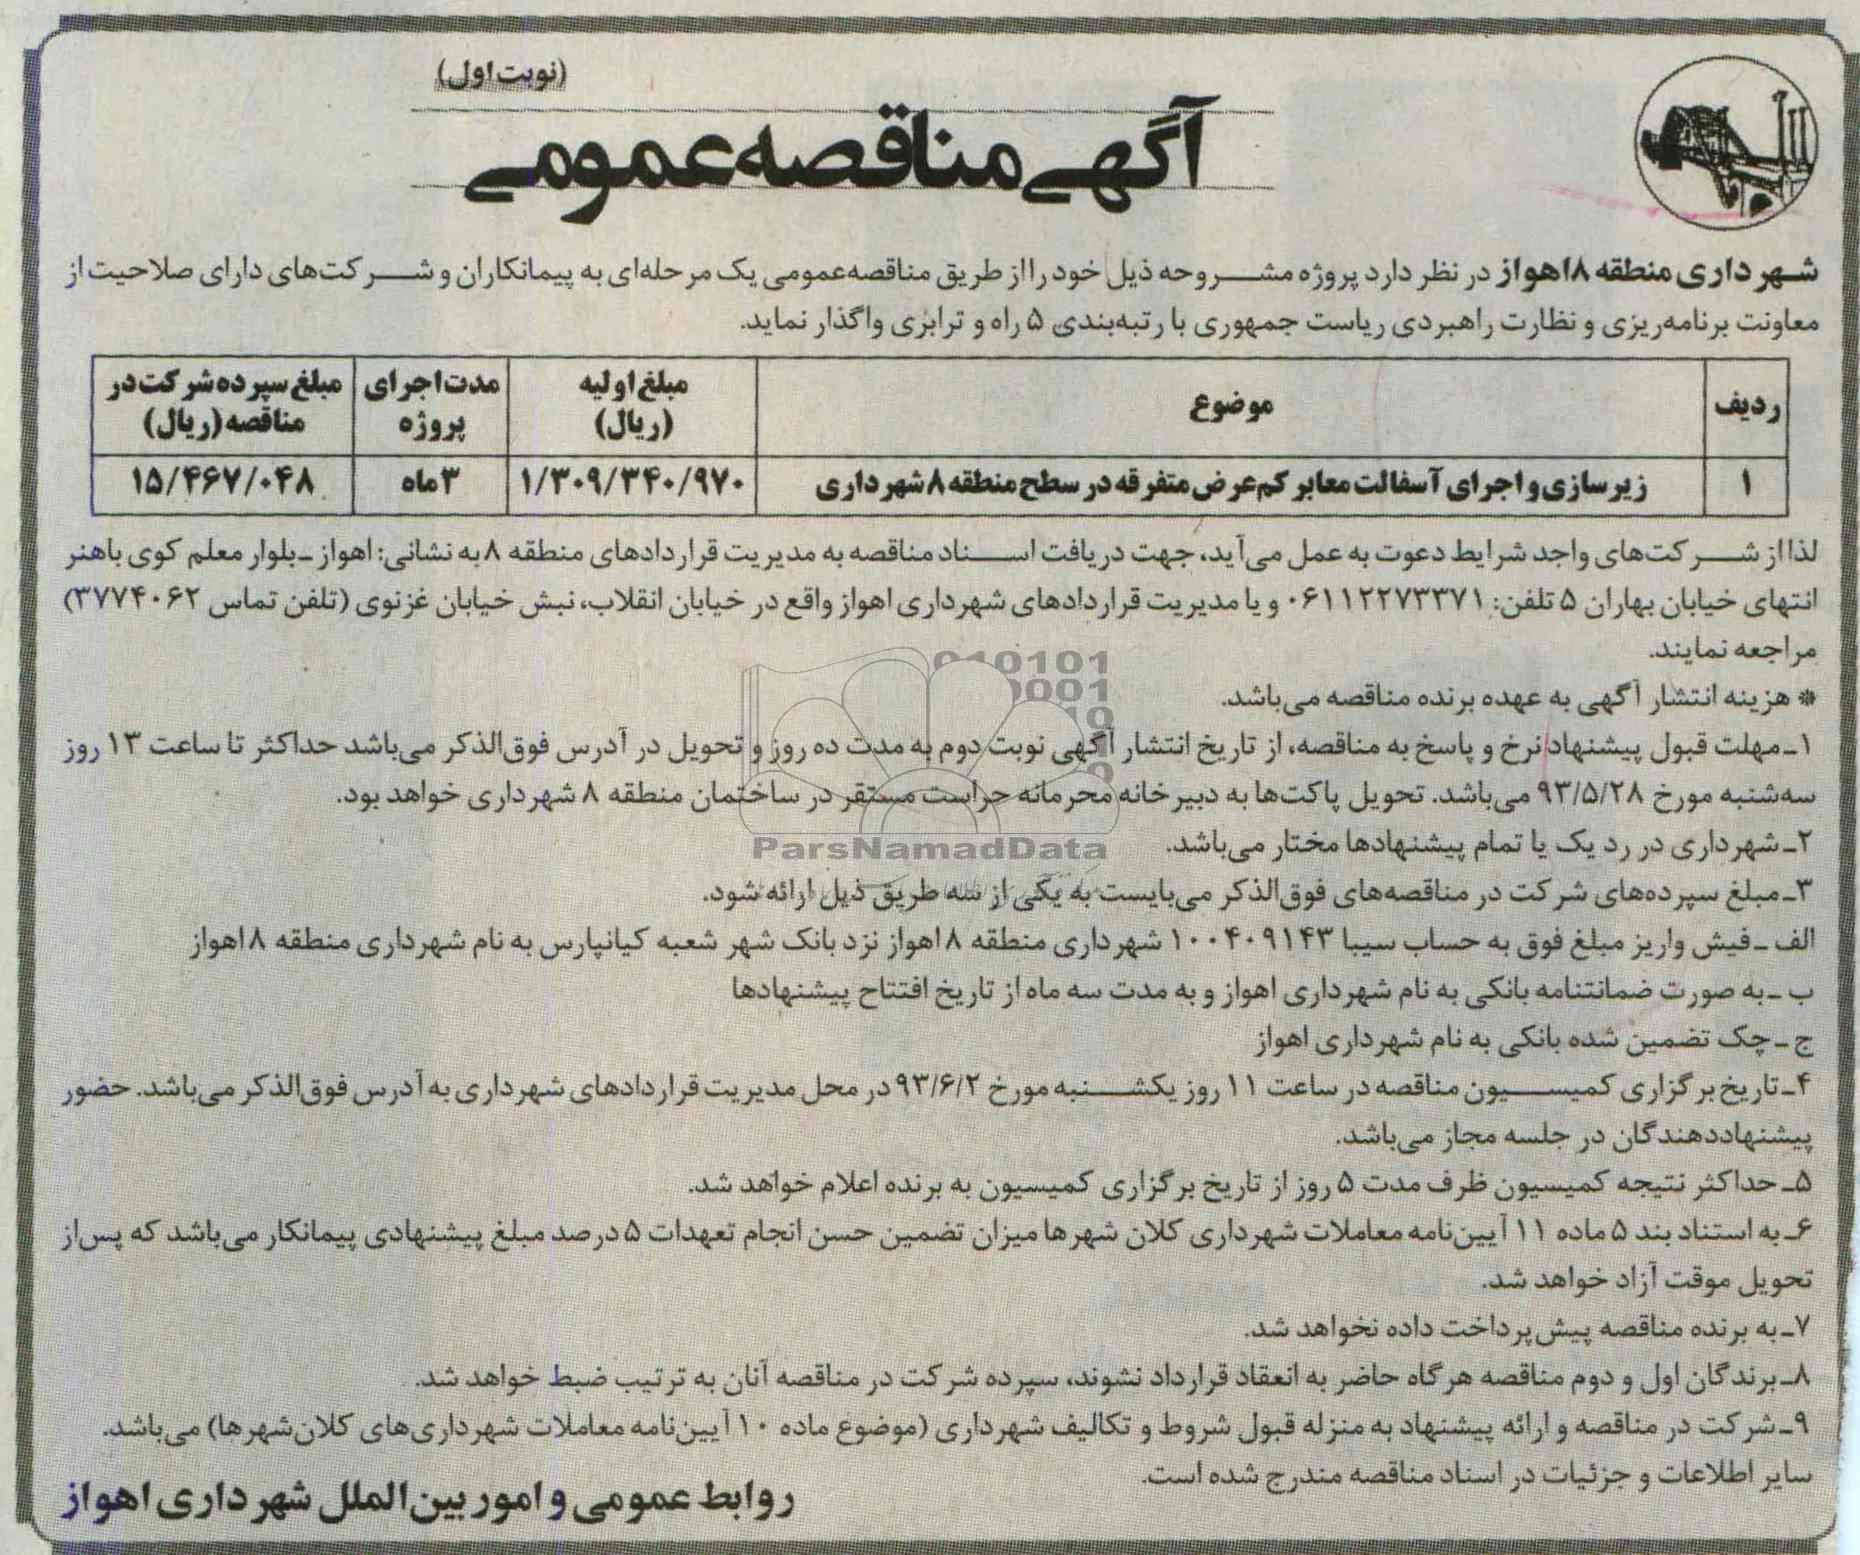 (نوبت اول)
آگهی مناقصه عمومی
شهرداری منطقه ۸ اهواز در نظر دارد پروژه مشروحه ذیل خود را از طریق مناقصه عمومی یک مرحله‌ای به پیمانکاران و شرکت‌های دارای صلاحیت از
معاونت برنامه‌ریزی و نظارت راهبردی ریاست جمهوری با رتبه‌بندی ۵ راه و ترابری واگذار نماید.
ردیف | موضوع | مبلغ اولیه (ریال) | مدت اجرای پروژه | مبلغ سپرده شرکت در مناقصه (ریال)
۱ | زیرسازی و اجرای آسفالت معابر کم‌عرض متفرقه در سطح منطقه ۸ شهرداری | ۱/۳۰۹/۳۴۰/۹۷۰ | ۳ ماه | ۱۵/۴۶۷/۰۴۸
لذا از شرکت‌های واجد شرایط دعوت به عمل می‌آید، جهت دریافت اسناد مناقصه به مدیریت قراردادهای منطقه ۸ به نشانی: اهواز ـ بلوار معلم کوی باهنر
انتهای خیابان بهاران ۵ تلفن: ۰۶۱۱۲۲۷۳۳۷۱ و یا مدیریت قراردادهای شهرداری اهواز واقع در خیابان انقلاب، نبش خیابان غزنوی (تلفن تماس ۳۷۷۴۰۶۲)
مراجعه نمایند.
* هزینه انتشار آگهی به عهده برنده مناقصه می‌باشد.
۱ـ مهلت قبول پیشنهاد نرخ و پاسخ به مناقصه، از تاریخ انتشار آگهی نوبت دوم به مدت ده روز و تحویل در آدرس فوق‌الذکر می‌باشد حداکثر تا ساعت ۱۳ روز
سه‌شنبه مورخ ۹۳/۵/۲۸ می‌باشد. تحویل پاکت‌ها به دبیرخانه محرمانه حراست مستقر در ساختمان منطقه ۸ شهرداری خواهد بود.
۲ـ شهرداری در رد یک یا تمام پیشنهادها مختار می‌باشد.
ParsNamadData
۳ـ مبلغ سپرده‌های شرکت در مناقصه‌های فوق‌الذکر می‌بایست به یکی از سه طریق ذیل ارائه شود.
الف ـ فیش واریز مبلغ فوق به حساب سیبا ۱۰۰۴۰۹۱۴۳ شهرداری منطقه ۸ اهواز نزد بانک شهر شعبه کیانپارس به نام شهرداری منطقه ۸ اهواز
ب ـ به صورت ضمانتنامه بانکی به نام شهرداری اهواز و به مدت سه ماه از تاریخ افتتاح پیشنهادها
ج ـ چک تضمین شده بانکی به نام شهرداری اهواز
۴ـ تاریخ برگزاری کمیسیون مناقصه در ساعت ۱۱ روز یکشنبه مورخ ۹۳/۶/۲ در محل مدیریت قراردادهای شهرداری به آدرس فوق‌الذکر می‌باشد. حضور
پیشنهاددهندگان در جلسه مجاز می‌باشد.
۵ـ حداکثر نتیجه کمیسیون ظرف مدت ۵ روز از تاریخ برگزاری کمیسیون به برنده اعلام خواهد شد.
۶ـ به استناد بند ۵ ماده ۱۱ آیین‌نامه معاملات شهرداری کلان شهرها میزان تضمین حسن انجام تعهدات ۵ درصد مبلغ پیشنهادی پیمانکار می‌باشد که پس از
تحویل موقت آزاد خواهد شد.
۷ـ به برنده مناقصه پیش‌پرداخت داده نخواهد شد.
۸ـ برندگان اول و دوم مناقصه هرگاه حاضر به انعقاد قرارداد نشوند، سپرده شرکت در مناقصه آنان به ترتیب ضبط خواهد شد.
۹ـ شرکت در مناقصه و ارائه پیشنهاد به منزله قبول شروط و تکالیف شهرداری (موضوع ماده ۱۰ آیین‌نامه معاملات شهرداری‌های کلان‌شهرها) می‌باشد.
سایر اطلاعات و جزئیات در اسناد مناقصه مندرج شده است.
روابط عمومی و امور بین‌الملل شهرداری اهواز